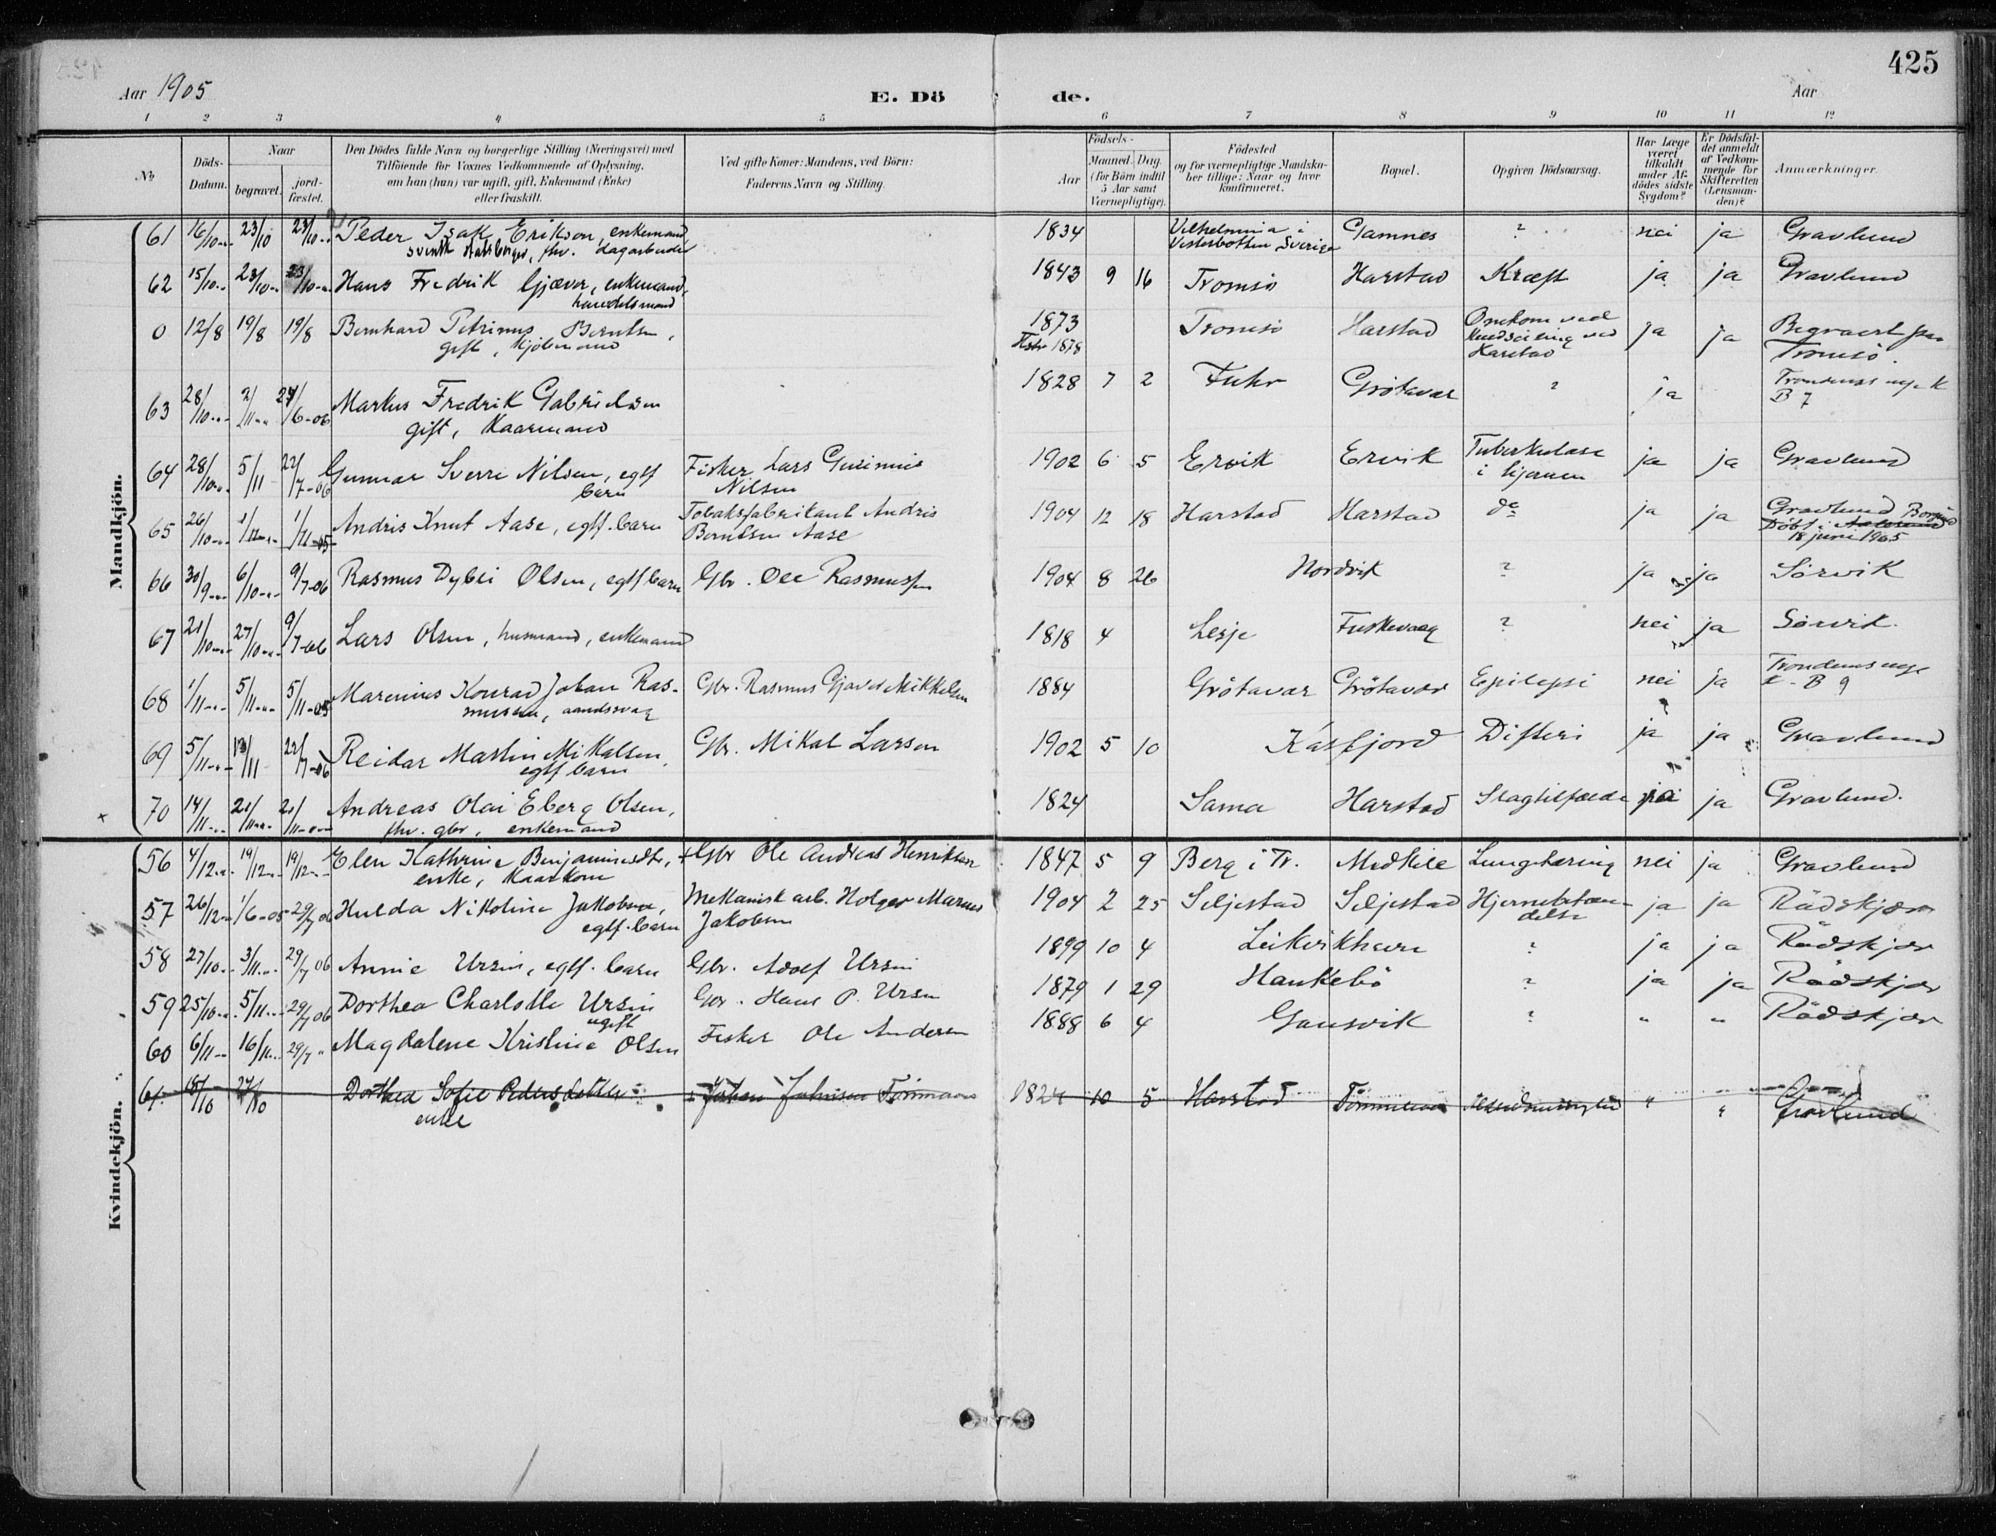 425
Aar 1905
E. Döde.
Aar
1 2 3 4 5 6 7 8 9 10 11 12
No.
Döds-Datum.
Naar
begravet.
jord-fæstet.
Den Dödes fulde Navn og borgerlige Stilling (Næringsvei) med
Tilföiende for Voxnes Vedkommende af Oplysning,
om han (hun) var ugift, gift, Enkemand (Enke)
eller fraskilt.
Ved gifte Koner: Mandens, ved Börn:
Faderens Navn og Stilling.
Födsels-
Aar
Maaned. Dag.
(for Börn indtil
5 Aar samt
Værnepligtige).
Födested
og for værnepligtige Mandska-
ber tillige: Naar og hvor
konfirmeret.
Bopæl.
Opgiven Dödsaarsag.
Har Læge
været
tilkaldt
under Af-
dödes sidste
Sygdom?
Er Dödsfal-
det anmeldt
af Vedkom-
mende for
Skifteretten
(Lensman-
den)?
Anmærkninger.
Mandkjön.
61 16/10 23/10 23/10 Peder Isak Erikson, enkemand 1834 Vilhelmina i Gamnes ? nei ja Gravlund
svensk statsborger, fhv. dagarbeider Vesterbotten Sverige
62 15/10 23/10 23/10 Hans Fredrik Gjæver, enkemand, 1843 9 16 Tromsö Harstad Kræft ja ja Gravlund
handelsmand
0 12/8 19/8 19/8 Bernhard Petrinus Berntsen, 1873 Tromsö Harstad Omkom ved ja ja Begravet paa
gift, kjöbmand 1878 Harstad Tromsö.
63 28/10 2/11 24/6-06 Markus Fredrik Gabrielsen 1828 7 2 Grötavær ? ja Trondenes nye K
gift, Kaarmand B 7
64 28/10 5/11 22/7-06 Gunnar Sverre Nilsen, egtf 1902 6 5 Ervik Ervik Tuberkulose ja ja Gravlund
barn Fisker Lars Nilsen i hjernen
65 26/10 1/11 1/11-05 Andris Knut Aase, egtf. barn Tobaksfabrikant Andris 1904 12 18 Harstad Harstad do ja ja Gravlund
Berntsen Aase Döbt i Borgund
18 juni 1905
66 30/9 6/10 9/7-06 Rasmus Olsen, egtf barn Gbr. Ole Rasmussen 1904 8 26 Nordvik ? ja ja Sörvik
67 21/10 27/10 9/7-06 Lars Olsen, husmand, enkemand 1818 4 Lesje Fuskevaag ? nei ja Sörvik.
68 1/11 5/11 5/11-05 Marenius Konrad Johan Ras- Gbr. Rasmus Mikkelsen 1884 Grötavær Grötavær Epilepsi nei ja Trondenes nye
musen, aandssvag K - B 9
69 5/11 13/11 22/7-06 Reidar Martin Mikalsen, Gbr. Mikal Larsen 1902 5 10 Kasfjord Difteri ja ja Gravlund
egtf barn
70 14/11 21/11 21/11 Andreas Olai Eberg Olsen, 1824 Sama Harstad Slagtilfælde ja ja Gravlund.
fhv. gbr, enkemand
Kvindekjön.
56 4/12 19/12 19/12 Elen Kathrine Benjaminsdtr, + Gbr Ole Andreas Henriksen 1847 5 9 Berg i Tr. Medkile Lungetæring nei ja Gravlund
enke, Kaarkone
57 26/12 1/6-05 29/7 06 Hulda Nikoline Jakobsen, Mekanisk arb. Holger Marius 1904 2 25 Seljestad Seljestad Hjernebetæn- ja ja Rödskjær
egtf. barn Jakobsen delse
58 27/10 3/11 29/7 06 Annie Ursin, egtf. barn Gbr. Adolf Ursin 1899 10 4 Leikvikhavn ? ja ja Rödskjær
59 25/10 5/11 29/7 06 Dorthea Charlotte Ursin Gbr. Hans P. Ursin 1879 1 29 Haukebö ? ja ja Rödskjær
ugift
60 6/11 16/11 29/7 " Magdalene Kristine Olsen Fisker Ole Andersen 1888 6 4 Gausvik ? " " Rödskjær
61 18/10 27/10 Dorthea Sofie Pedersdatter Johan Johnsen Tömmeraas 1824 10 5 Harstad " " Gravlund
enke